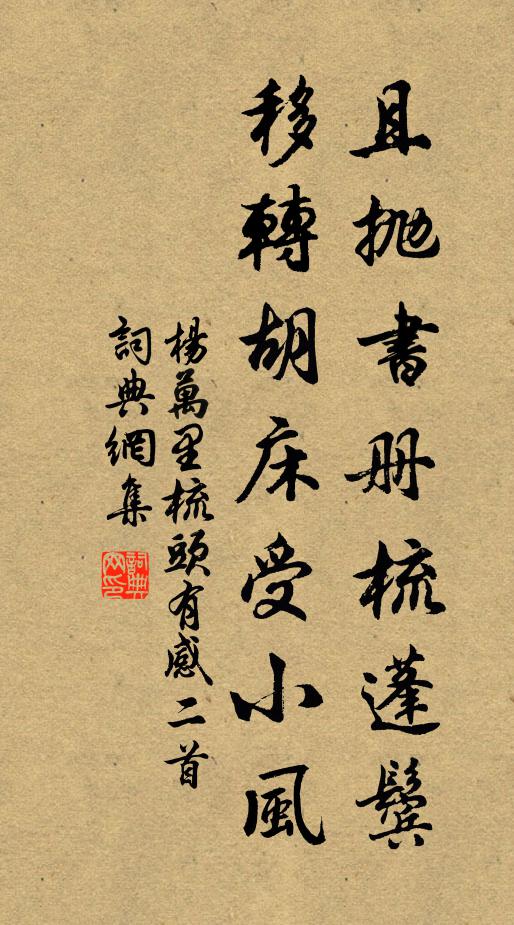 且拋書册梳蓬鬢
移轉胡床受小風
楊萬里梳頭有感二首
詞典網集
詞典網印